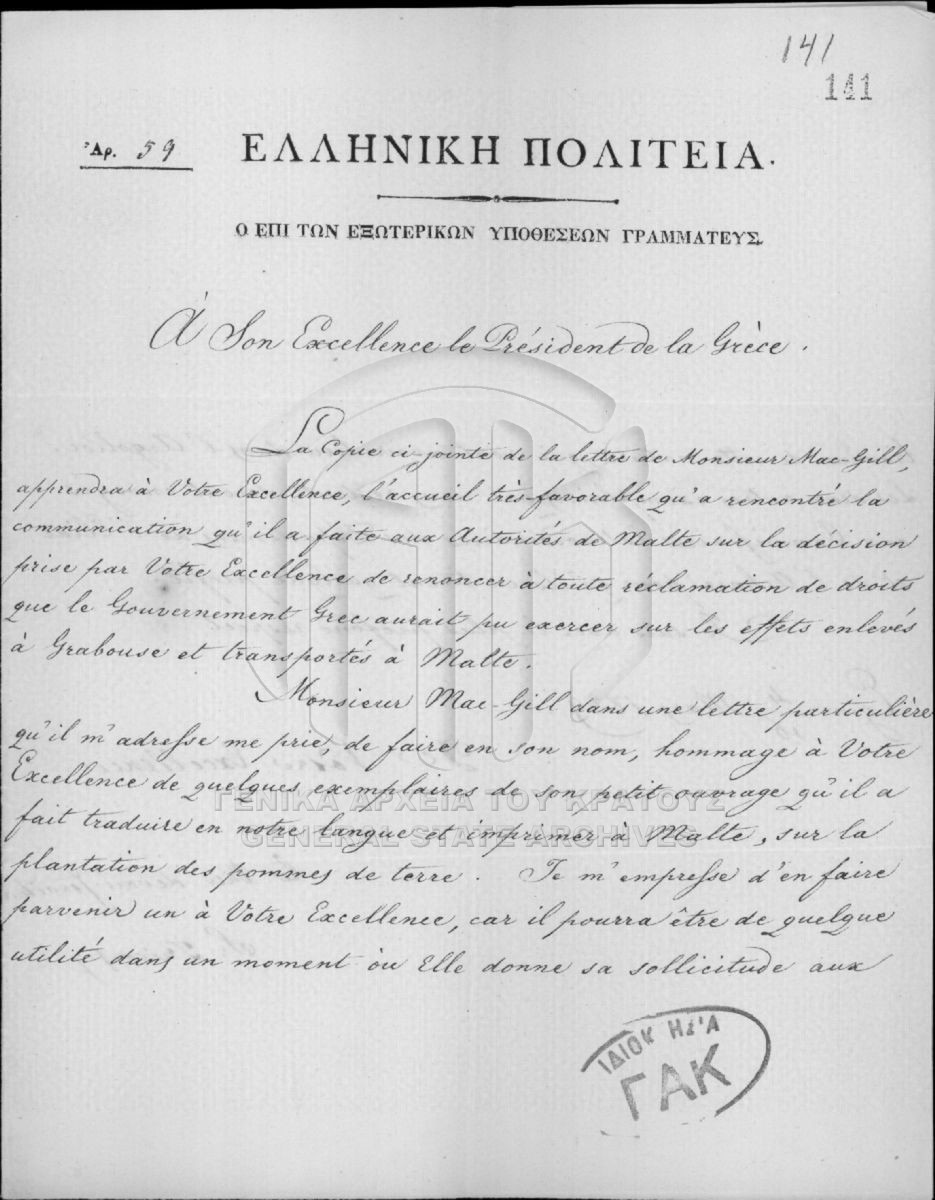 141
141
Ἀρ. 59 ΕΛΛΗΝΙΚΗ ΠΟΛΙΤΕΙΑ.
Ο ΕΠΙ ΤΩΝ ΕΞΩΤΕΡΙΚΩΝ ΥΠΟΘΕΣΕΩΝ ΓΡΑΜΜΑΤΕΥΣ.
À Son Excellence le Président de la Grèce.
La Copie ci-jointe de la lettre de Monsieur Mac-Gill,
apprendra à Votre Excellence, l'accueil très-favorable qu'a rencontré la
communication qu'il a faite aux Autorités de Malte sur la décision
prise par Votre Excellence de renoncer à toute réclamation de droits
que le Gouvernement Grec aurait pu exercer sur les effets enlevés
à Grabouse et transportés à Malte.
Monsieur Mac-Gill dans une lettre particulière
qu'il m'adresse me prie, de faire en son nom, hommage à Votre
Excellence de quelques exemplaires de son petit ouvrage qu'il a
fait traduire en notre langue et imprimer à Malte, sur la
plantation des pommes de terre. Je m'empresse d'en faire
parvenir un à Votre Excellence, car il pourra être de quelque
utilité dans un moment où Elle donne sa sollicitude aux
ΓΕΝΙΚΑ ΑΡΧΕΙΑ ΤΟΥ ΚΡΑΤΟΥΣ
GENERAL STATE ARCHIVES
ΙΔΙΟΚΗΣΙΑ
ΓΑΚ